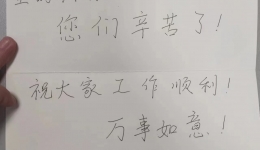 您们辛苦了!
祝大家工作顺利!
万事如意!